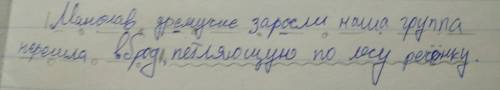 Миновав, дремучие заросли наша группа
перешла вброд, петляющую по лесу речонку.